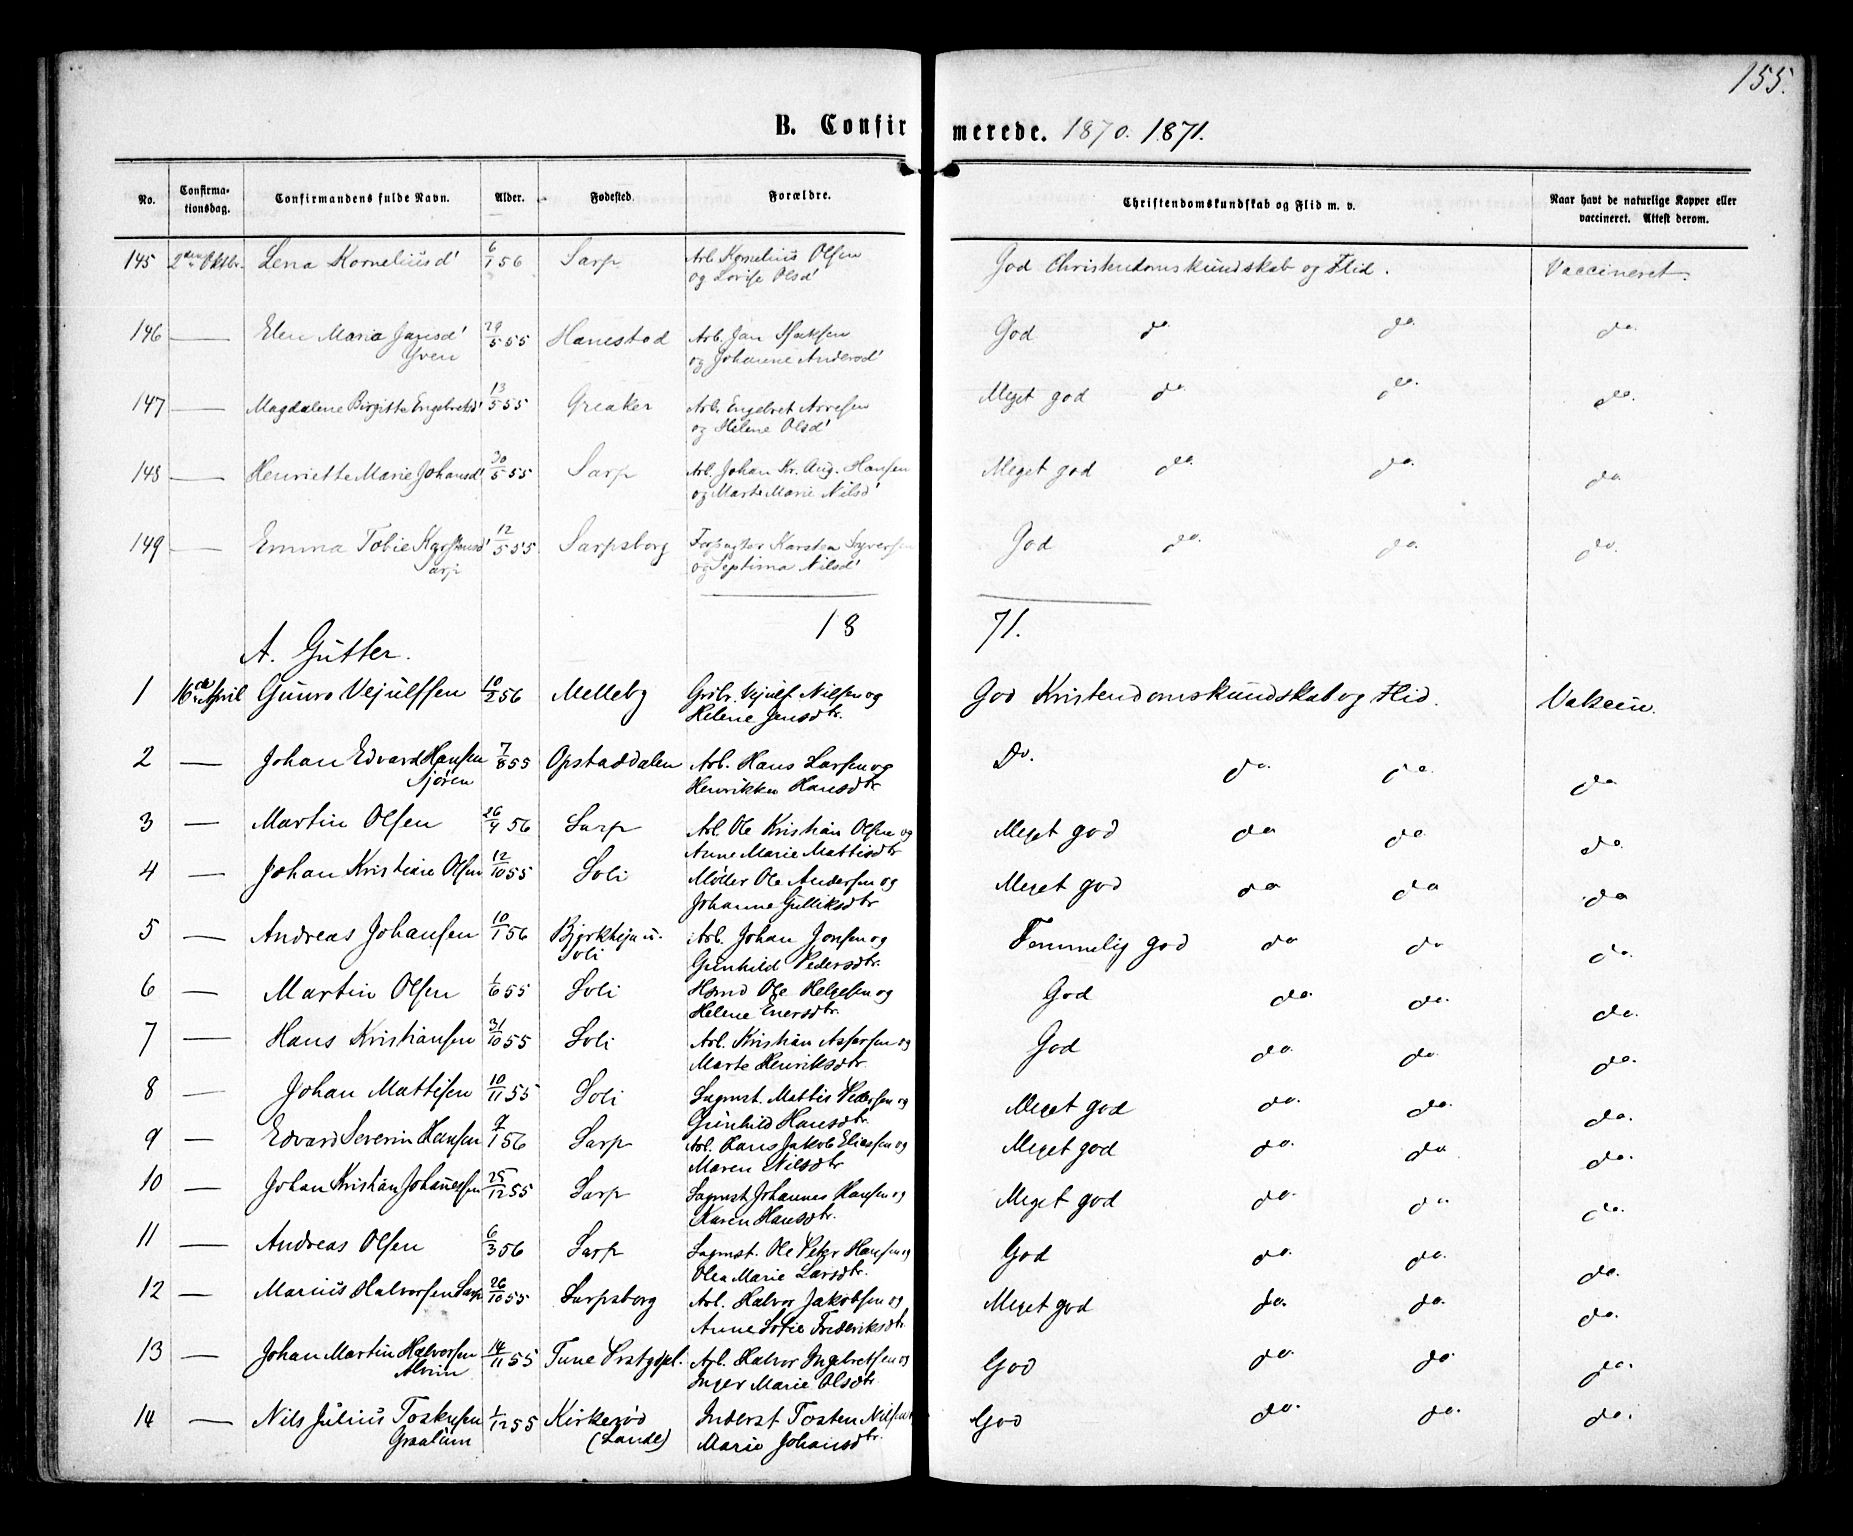 155.
B. Confirmerede. 1870. 1871.
No. Confirmationsdag. Confirmandens fulde Navn. Alder. Fødested. Forældre. Christendomskundskab og Flid m. v. Naar havt de naturlige Kopper eller vaccineret. Attest derom.
145 2den Oktbr. Lena Korneliusd' 6/1 56 Sarp Arb. Kornelius Olsen God Christendomskundskab og Flid. Vaccineret.
og Lovise Olsd'
146 — Elen Maria Jansd' 29/5 55 Hanestad Arb. Jan Isaksen God do. do. do.
Yven og Johanne Andersd'
147 — Magdalene Birgitte Engebretsd' 13/5 55 Greaker Arb. Engebret Arvesen Meget god do. do. do.
og Helene Olsd'
148 — Henriette Marie Johansd' 30/5 55 Sarp Arb. Johan Kr. Aug. Hansen Meget god do. do. do.
og Marte Marie Nilsd'
149 — Emma Tobie Karstensd' 12/5 55 Sarpsborg Forpagter Karsten Syversen God do. do. do.
Sarp og Septima Nilsd'
18 71.
A. Gutter.
1 16de April Gunro Vejulfsen 10/2 56 Melleby Grdbr. Vejulf Nilsen og God Kristendomskundskab og Flid. Vakcin.
Helene Jensdtr.
2 — Johan Edvard Hansen 7/8 55 Opstaddalen Arb. Hans Larsen og Do. do. do. do
Sjøren Henrikke Hansdtr
3 — Martin Olsen 26/4 56 Sarp Arb. Ole Kristian Olsen og Meget god do do do.
Anne Marie Mattisdtr
4 — Johan Kristian Olsen 12/10 55 Soli Møller Ole Andersen og Meget god do do do
Johanne Gulliksdtr
5 — Andreas Johansen 10/1 56 Bjørkheja u. Arb. Johan Jonsen og Temmelig god do do do.
Soli Gunhild Pedersdtr.
6 — Martin Olsen 1/6 55 Soli Hsmd Ole Helgesen og God do. do. do.
Helene Enersdtr.
7 — Hans Kristiansen 31/10 55 Soli Arb. Kristian Assersen og God do. do. do.
Marte Henriksdtr.
8 — Johan Mattisen 10/11 55 Soli Sagmst. Mattis Pedersen og Meget god do. do. do.
Gunhild Hansdtr.
9 — Edvard Severin Hansen 9/1 56 Sarp Arb. Hans Jakob Eliassen og Meget god do. do do.
Maren Nilsdtr
10 — Johan Kristian Johannessen 25/12 55 Sarp Sagmst Johannes Hansen og Meget god do. do do.
Karen Hansdtr.
11 — Andreas Olsen 6/3 56 Sarp Sagmst. Ole Peter Hansen og God do. do. do.
Olea Marie Larsdtr.
12 — Marius Halvorsen Sarp 26/10 55 Sarpsborg Arb. Halvor Jakobsen og Meget god do. do. do.
Anne Sofie Frederiksdtr.
13 — Johan Martin Halvorsen 14/11 55 Tune Prstgdpl. Arb. Halvor Ingebretsen og God do. do do.
Alvim Inger Marie Olsdtr.
14 — Nils Julius Tostensen 1/12 55 Kirkerød Inderst Tosten Nilsen God do. do. do.
Graalum (Lande) Marie Johansdtr.